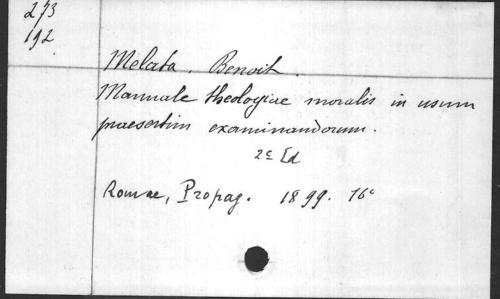 273
192
Melata. Benoit.
Manuale theologiae moralis in usum
praesertim examinandorum.
2e Ed
Romae, Propag. 1899. 16º